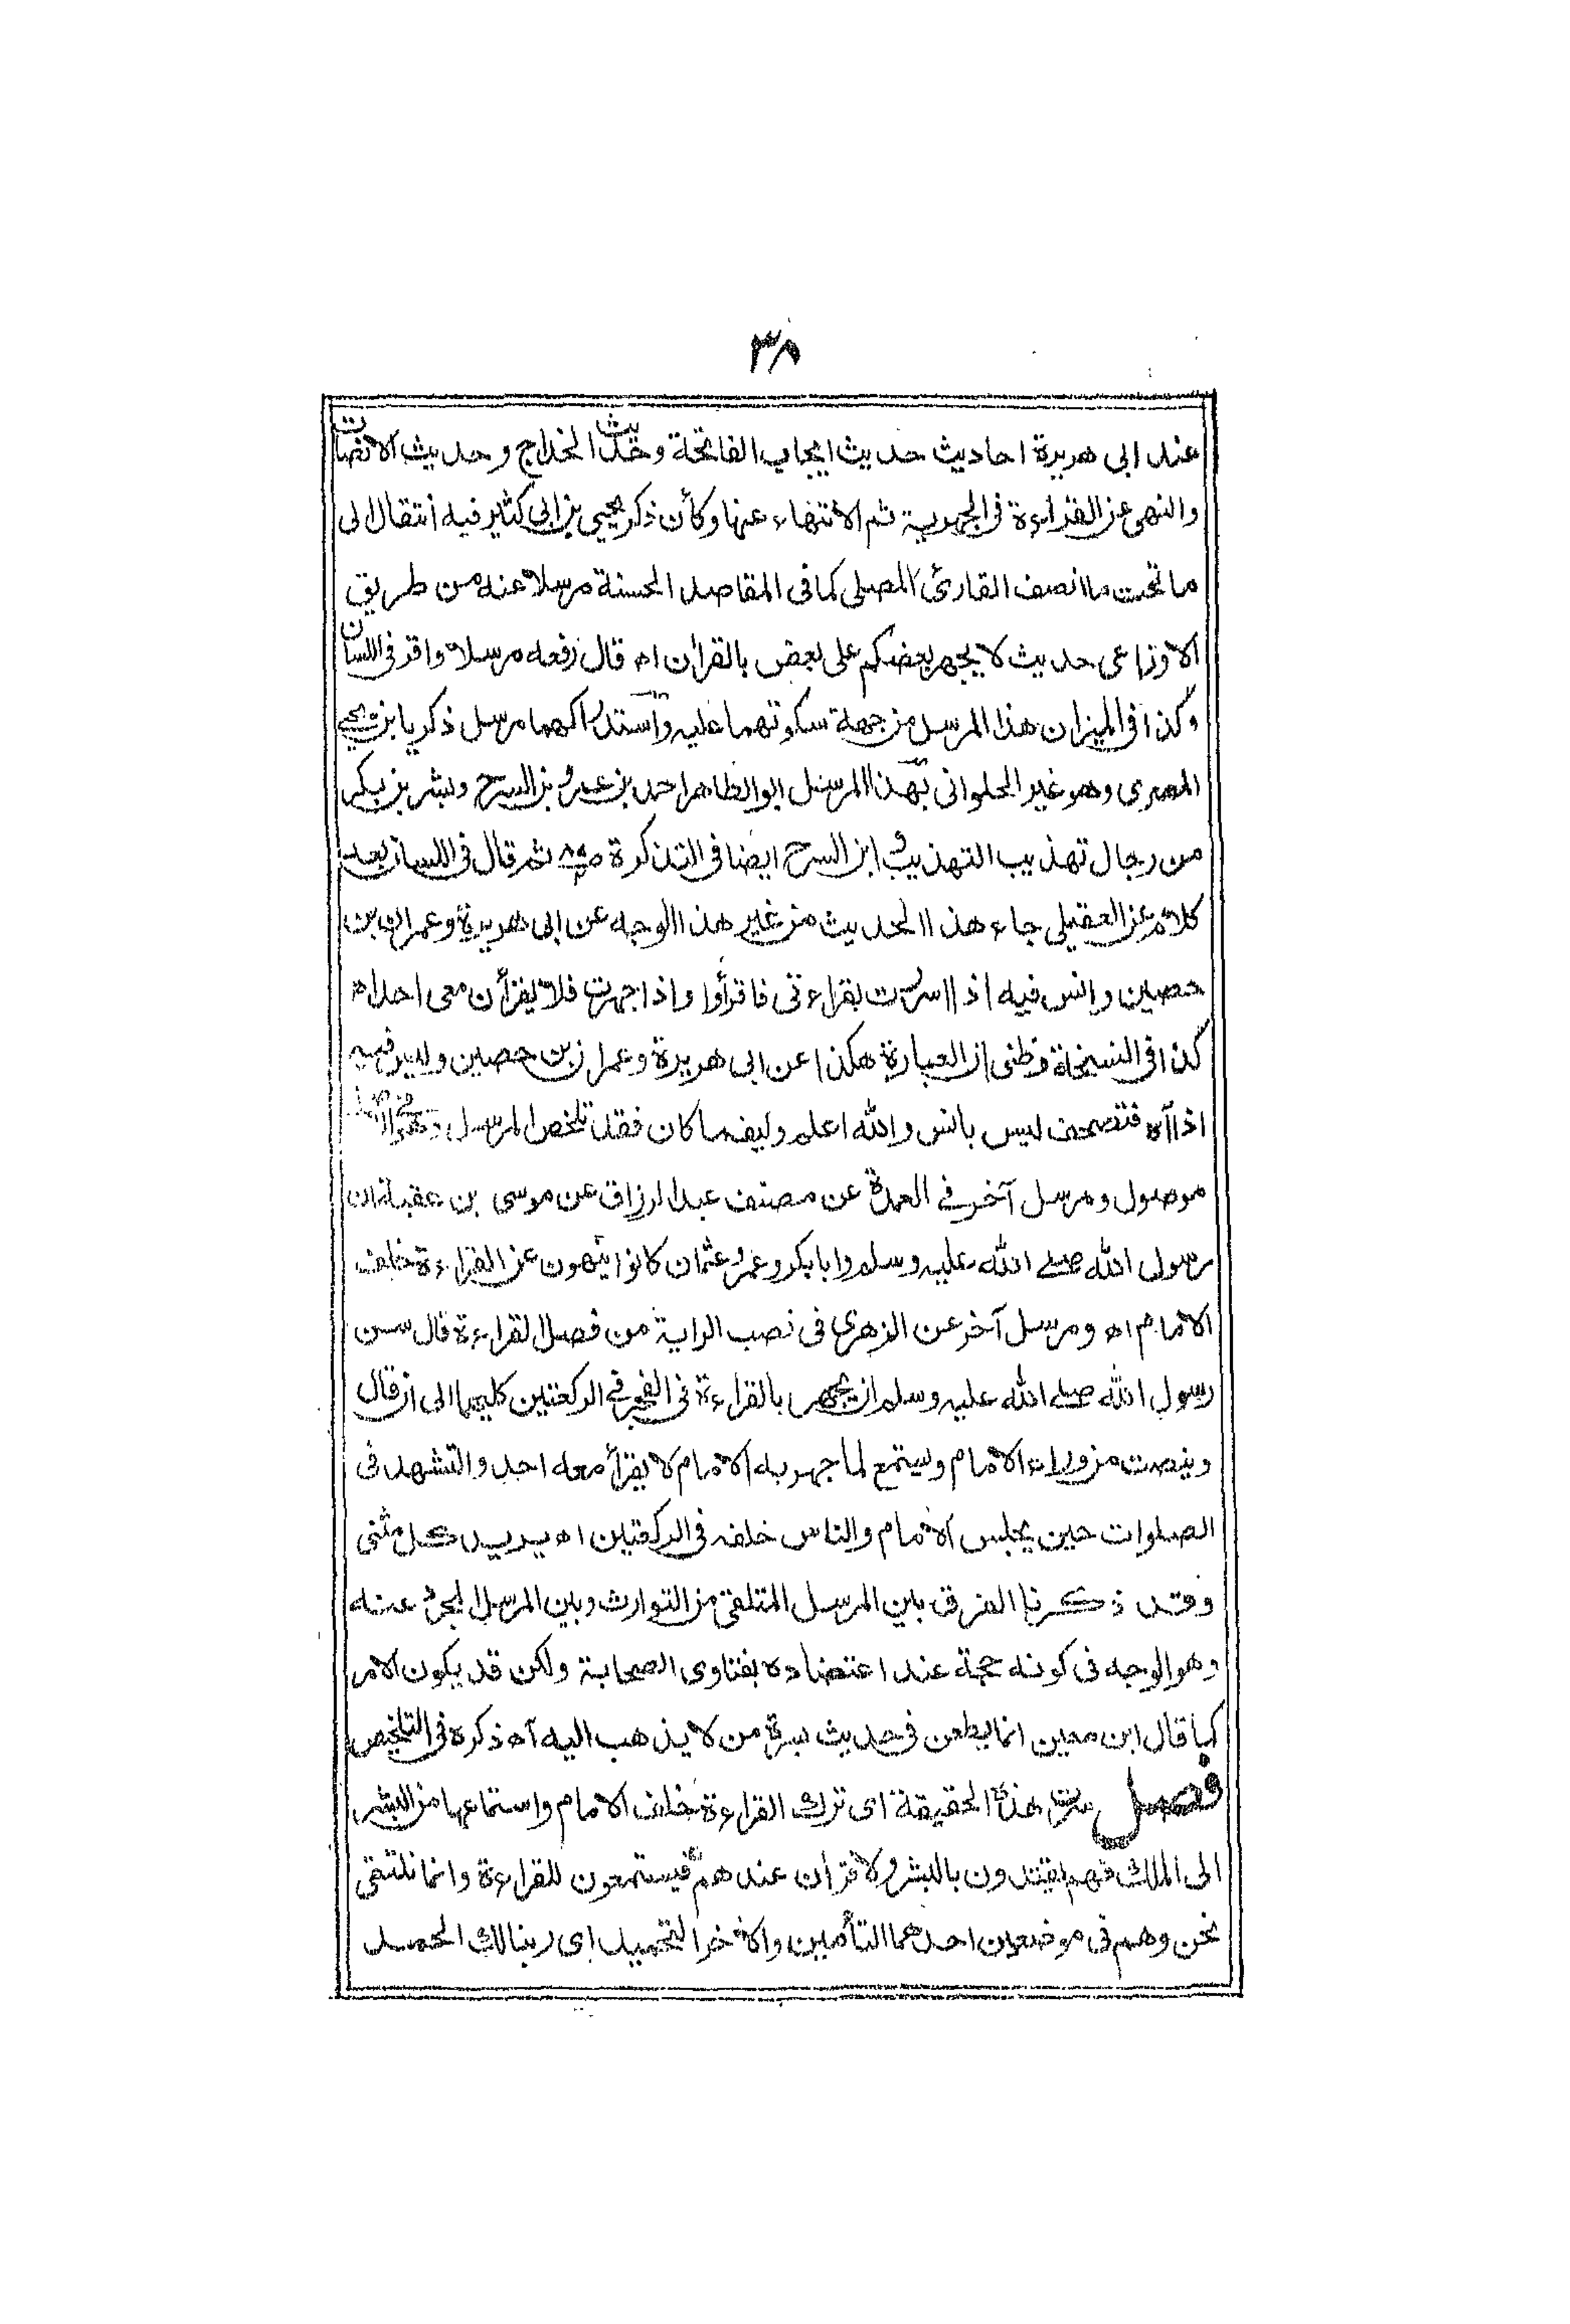 ٣٨
عند ابى هريرة احاديث حديث ايجاب الفاتحة وحديث الخداج وحديث الانصات
والنهى عن القراءة فى الجهرية ثم الانتهاء عنها وكأن ذكر يحيى بن ابى كثير فيه انتقال الى
ما تحت ما انصف القارئ المصلى كما فى المقاصد الحسنة مرسلا عنه من طريق
الاوزاعى حديث لا يجهر بعضكم على بعض بالقرأن اه قال رفعه مرسلا واقر فى اللسان
وكذا فى الميزان هذا المرسل من جهة سكوتهما عليه واستدراكهما مرسل ذكريا بن يحيى
المصرى وهو غير الحلوانى بهذا المرسل ابو الطاهر احمد بن عمرو بن السرح وبشر بن بكر
من رجال تهذيب التهذيب و ابن السرح ايضا فى التذكرة ثم قال فى اللسان بعد
كلام عن العقيلى جاء هذا الحديث من غير هذا الوجه عن ابى هريرة وعمران بن
حصين وانس فيه اذا اسررت بقراءتى فاقرأوا واذا جهرت فلا يقرأن معى احد اه
كذا فى النسخة وظنى ان العبارة هكذا عن ابى هريرة وعمران بن حصين وليس فيه
اذا اه فتصحف ليس بانس والله اعلم وكيف ما كان فقد تلخص المرسل
موصول ومرسل آخر فى العمدة عن مصنف عبد الرزاق عن موسى بن عقبة ان
رسول الله صلى الله عليه وسلم وابا بكر وعمر وعثمان كانوا ينهون عن القراءة خلف
الامام اه ومرسل آخر عن الزهرى فى نصب الراية من فصل القراءة قال سن
رسول الله صلى الله عليه وسلم ان يجهر بالقراءة فى الفجر فى الركعتين كليهما الى ان قال
وينصت من وراء الامام ويستمع لما جهر به الامام لا يقرأ معه احد والتشهد فى
الصلوات حين يجلس الامام والناس خلفه فى الركعتين اه يريد كل مثنى
وقد ذكرنا الفرق بين المرسل المتلقى من التوارث وبين المرسل المجرد عنه
وهو الوجه فى كونه حجة عند اعتضاده بفتاوى الصحابة ولكن قد يكون الامر
كما قال ابن معين انما يطعن فى حديث بسرة من لا يذهب اليه اه ذكره فى التلخيص
فصل سرت هذه الحقيقة اى ترك القراءة خلف الامام واستماعها من البشر
الى الملك فهم يقتدون بالبشر ولا قرأن عندهم فيستمعون للقراءة وانما نلتقى
نحن وهم فى موضعين احدهما التأمين والاخر التحميد اى ربنا لك الحمد